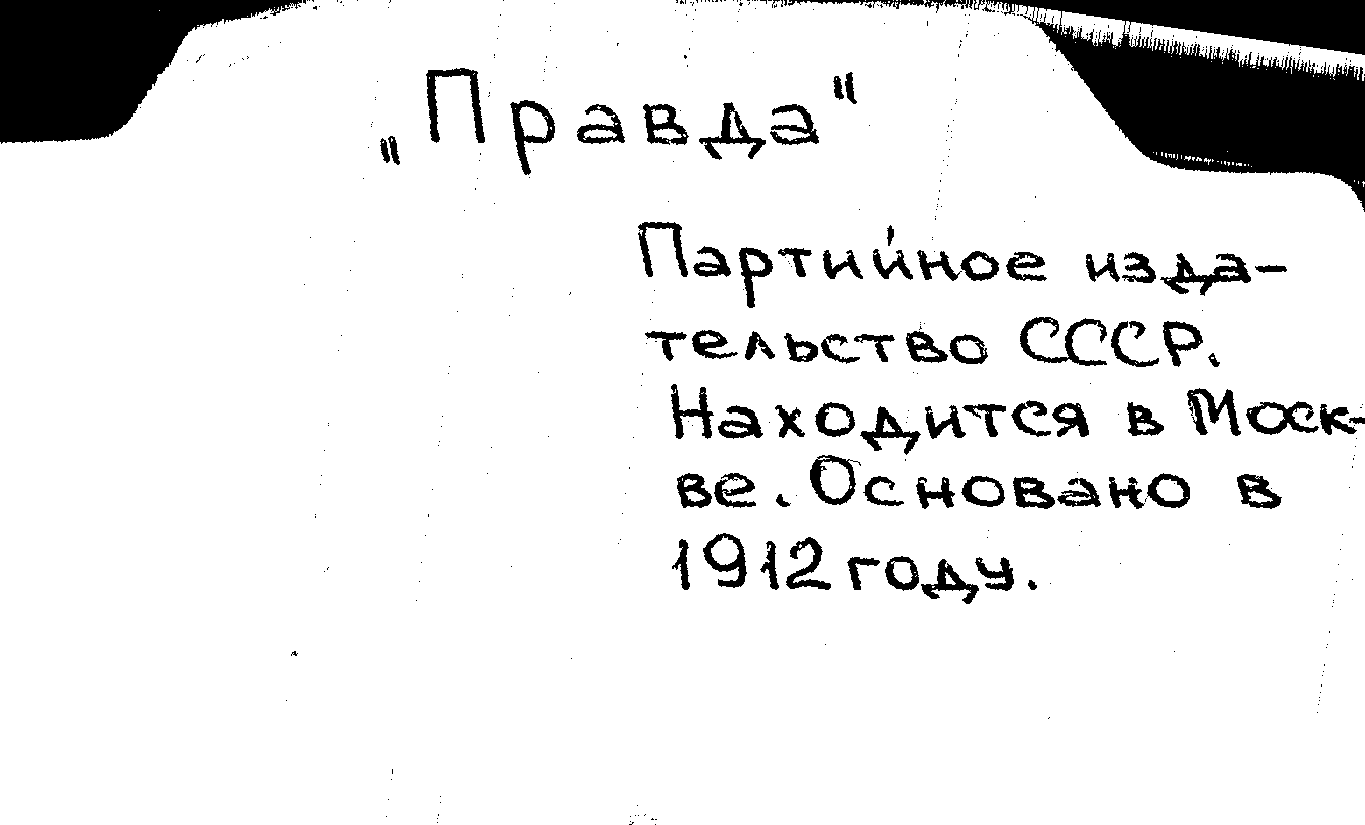 „Правда"
Партийное изда-
тельство СССР.
Находится в Моск-
ве. Основано в
1912 году.